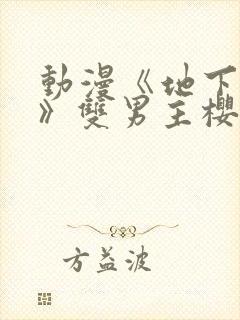 動漫《地下
》雙男主櫻
方益波